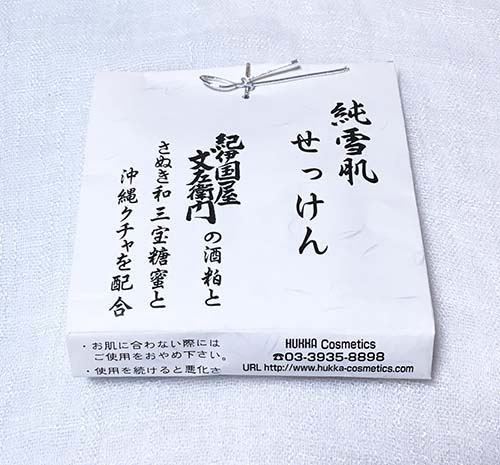 純雪肌
せっけん
紀伊国屋文左衛門の酒粕と
さぬき和三宝糖蜜と
沖縄クチャを配合
・お肌に合わない際には
ご使用をおやめ下さい。
・使用を続けると悪化さ
HUKKA Cosmetics
☎03-3935-8898
URL http://www.hukka-cosmetics.com